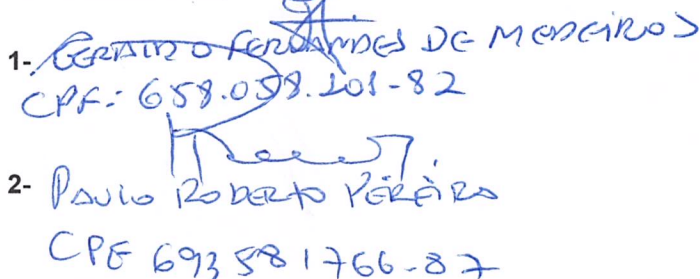 1- GERALDO FERNANDES DE MEDEIROS
CPF: 658.058.201-82
2- PAULO ROBERTO PEREIRA
CPF 693581766-87